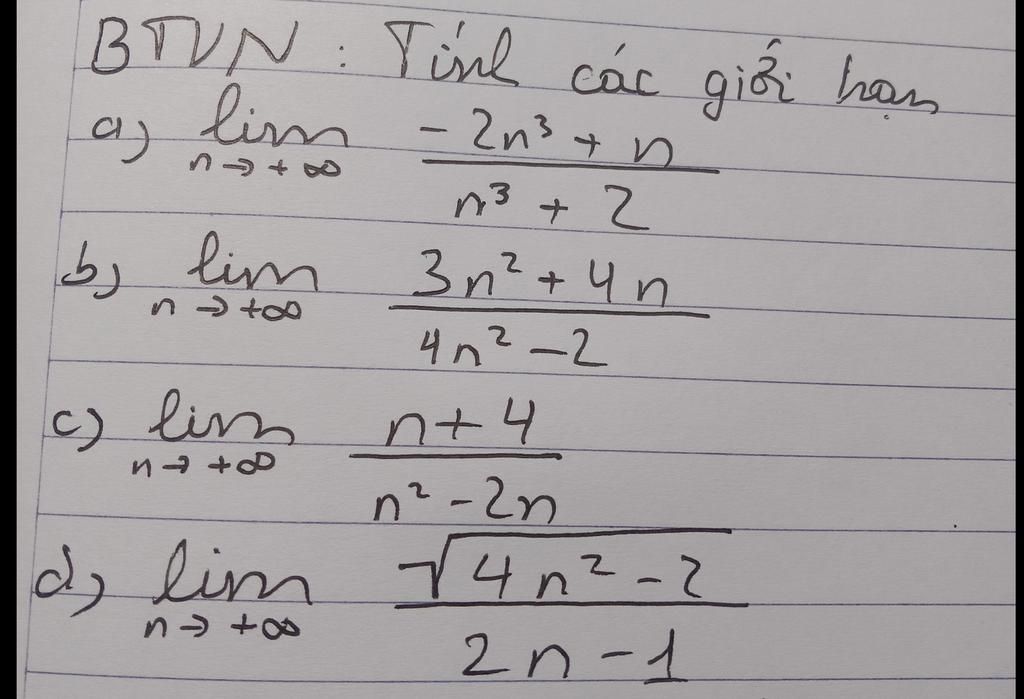 BTVN : Tính các giới hạn
a) lim n→+∞ (-2n³ + n)/(n³ + 2)
b) lim n→+∞ (3n² + 4n)/(4n² - 2)
c) lim n→+∞ (n + 4)/(n² - 2n)
d) lim n→+∞ √(4n² - 2)/(2n - 1)